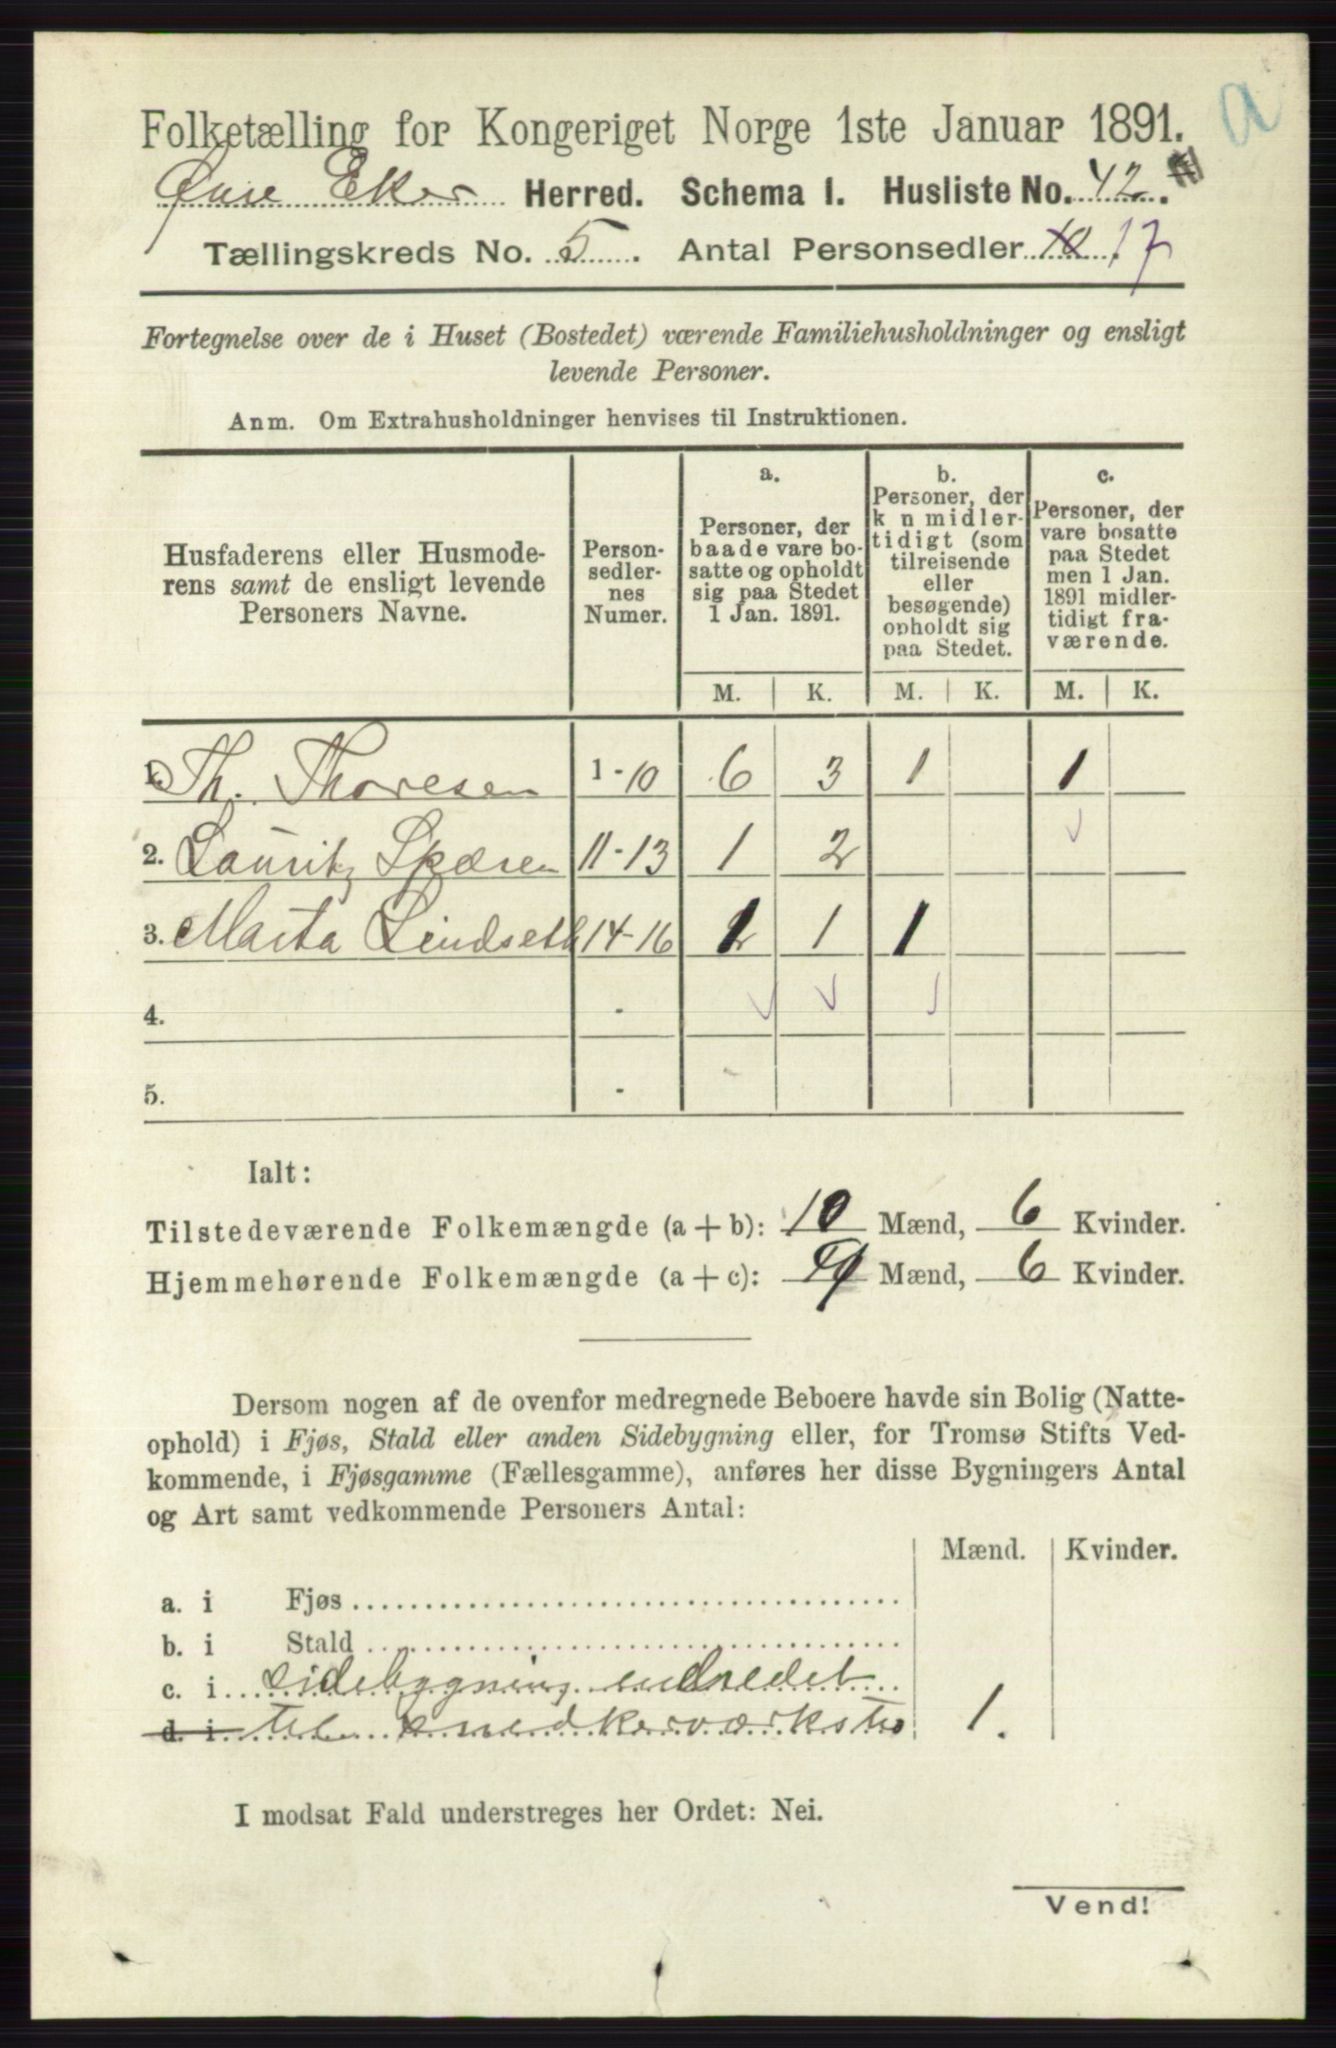 a
Folketælling for Kongeriget Norge 1ste Januar 1891.
Øvre Eker Herred. Schema 1. Husliste No. 42.
Tællingskreds No. 5. Antal Personsedler 17
Fortegnelse over de i Huset (Bostedet) værende Familiehusholdninger og ensligt
levende Personer.
Anm. Om Extrahusholdninger henvises til Instruktionen.
Husfaderens eller Husmode-
rens samt de ensligt levende
Personers Navne.
Person-
sedler-
nes
Numer.
a.
Personer, der
baade vare bo-
satte og opholdt
sig paa Stedet
1 Jan. 1891.
b.
Personer, der
k n midler-
tidigt (som
tilreisende
eller
besøgende)
opholdt sig
paa Stedet.
c.
Personer, der
vare bosatte
paa Stedet
men 1 Jan.
1891 midler-
tidigt fra-
værende.
M. K. M. K. M. K.
1. Th. Thoresen 1-10 6 3 1 1
2. Lauritz 11-13 1 2
3. Marta Lindseth 14-16 1 1
4. -
5. -
Ialt:
Tilstedeværende Folkemængde (a + b): 10 Mænd, 6 Kvinder.
Hjemmehørende Folkemængde (a + c): Mænd, 6 Kvinder.
Dersom nogen af de ovenfor medregnede Beboere havde sin Bolig (Natte-
ophold) i Fjøs, Stald eller anden Sidebygning eller, for Tromsø Stifts Ved-
kommende, i Fjøsgamme (Fællesgamme), anføres her disse Bygningers Antal
og Art samt vedkommende Personers Antal:
Mænd. Kvinder.
a. i Fjøs
b. i Stald
c. i sidebygning indredet
d. i til snedkerværksted 1.
I modsat Fald understreges her Ordet: Nei.
Vend!